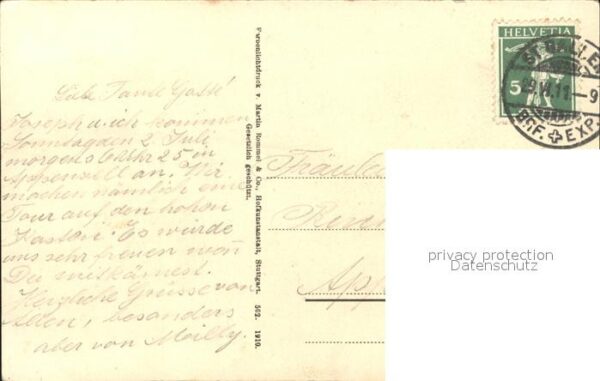 Liebe Tante Gotte!
Joseph u. ich kommen
Sonntag den 2 Juli
morgens 6 Uhr 25 in
Appenzell an. Wir
machen nämlich eine
Tour auf den hohen
Kasten. Es würde
uns sehr freuen wenn
Du mitkämest.
Herzliche Grüsse von
Allen, besonders
aber von Meilly.
Personlichtdruck v. Martin Rommel & Co., Hofkunstanstalt, Stuttgart. 562. 1910.
Gesetzlich geschützt.
HELVETIA
5
ST. GALLEN
29.VI.11–9
BRF. EXP.
Fräulein
App
privacy protection
Datenschutz